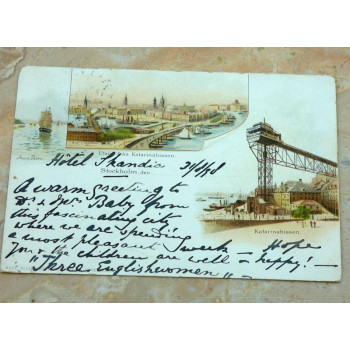 Utsigt från Katarinahissen.
Hôtel Skandia
Stockholm den
Katarinahissen.
A warm greeting to
Dr. & Mrs. Baby from
this fascinating city
where we are spending
a most pleasant week. Hope
you & the children are well & happy!
"Three Englishwomen"